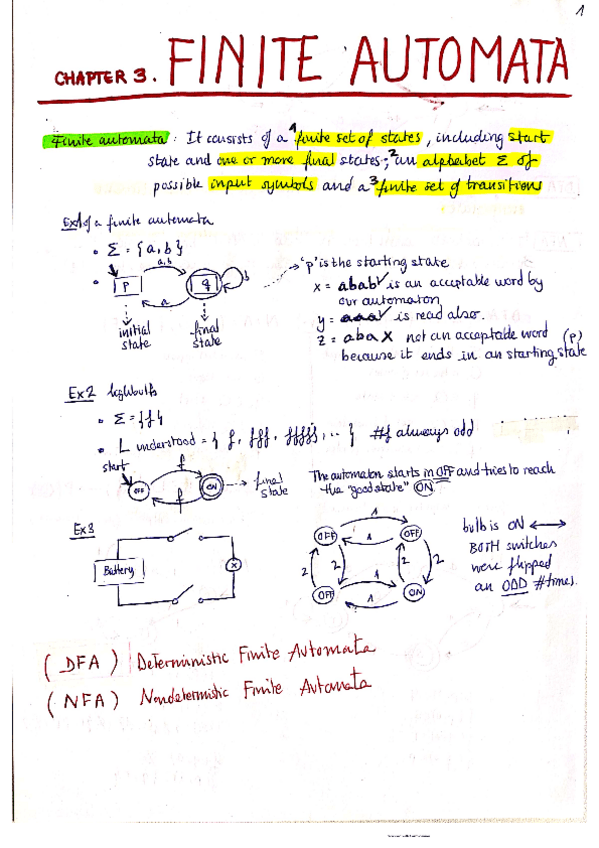 1
CHAPTER 3. FINITE AUTOMATA
Finite automata: It consists of a 1 finite set of states, including start
state and one or more final states; 2 an alphabet Σ of
possible input symbols and a 3 finite set of transitions
Ex1 of a finite automata
• Σ = {a,b}
a,b
p
q
b
a
initial state
final state
'p' is the starting state
x = abab ✓ is an acceptable word by
our automaton
y = aaa ✓ is read also.
z = aba X not an acceptable word
because it ends in an starting state (p)
Ex2 lightbulbs
• Σ = {f}
• L understood = { f, fff, fffff, ... } #f always odd
start
f
OFF
ON
f
final state
The automaton starts in OFF and tries to reach
the "good state" ON
Ex3
Battery
X
1
OFF
OFF
1
2
2
2
2
1
OFF
ON
1
bulb is ON ⟷
BOTH switches
were flipped
an ODD #times.
(DFA) Deterministic Finite Automata
(NFA) Nondetermistic Finite Automata